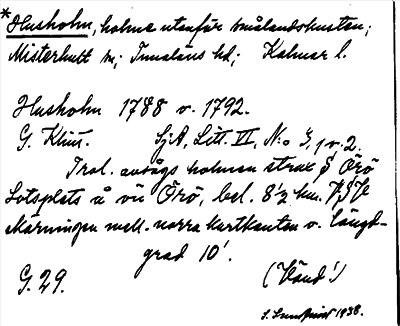 *Husholm, holme utanför smålandskusten;
Misterhult sn; Tunaläns hd; Kalmar l.
Husholm 1788 o. 1792.
G. Klint. SjA, Litt. VI, N:o 3, 1 o. 2.
Trol. avsågs holmen strax S Örö
Lotsplats å ön Örö, bel. 8½ km.
skärningen mell. norra kartkanten o. längd-
grad 10'.
G. 29. (Vänd!)
1938.